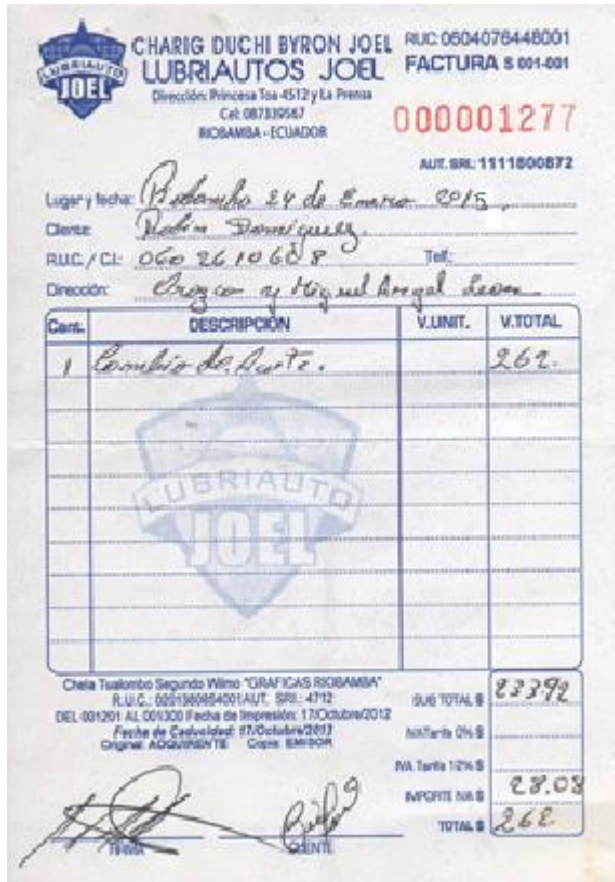 CHARIG DUCHI BYRON JOEL
LUBRIAUTOS JOEL
LUBRIAUTO
JOEL
Dirección: Princesa Toa 4512 y La Prensa
Cel:
RIOBAMBA - ECUADOR
RUC: 0604076446001
FACTURA S 001-001
000001277
AUT. SRI.: 1111600872
Lugar y fecha: Riobamba 24 de Enero 2015
Cliente: Dominguez
R.U.C. / C.I.: Telf.:
Dirección: y Miguel Angel Leon
Cant. DESCRIPCIÓN V.UNIT. V.TOTAL
1 Cambio de Aceite. 262.
LUBRIAUTO
JOEL
Segundo Wilmo "GRAFICAS RIOBAMBA"
R.U.C.: AUT. SRI.: 4712
DEL 001201 AL 001300 Fecha de Impresión: 17/Octubre/2012
Fecha de Caducidad: 17/Octubre/2013
Original: ADQUIRENTE Copia: EMISOR
SUB TOTAL $ 233.92
IVA Tarifa 0% $
IVA Tarifa 12% $
IMPORTE IVA $ 28.08
TOTAL $ 262.
FIRMA CLIENTE